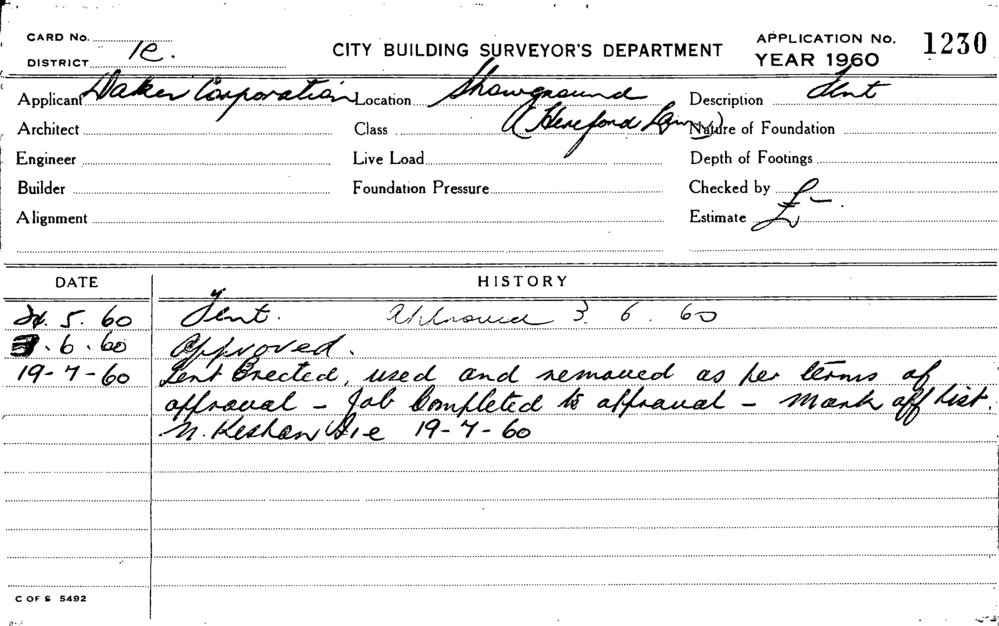 CARD No.
DISTRICT 1e.
CITY BUILDING SURVEYOR'S DEPARTMENT
APPLICATION No. 1230
YEAR 1960
Applicant Daker Corporation Location Showground Description Tent
Architect Class (Hereford Lawns) Nature of Foundation
Engineer Live Load Depth of Footings
Builder Foundation Pressure Checked by
Alignment Estimate £-.
DATE HISTORY
5. 60 Tent. approved 3. 6. 60
3. 6. 60 Approved.
19-7-60 Tent Erected, used and removed as per terms of
approval - Job Completed to approval - Mark off List.
19-7-60
C OF S 5492